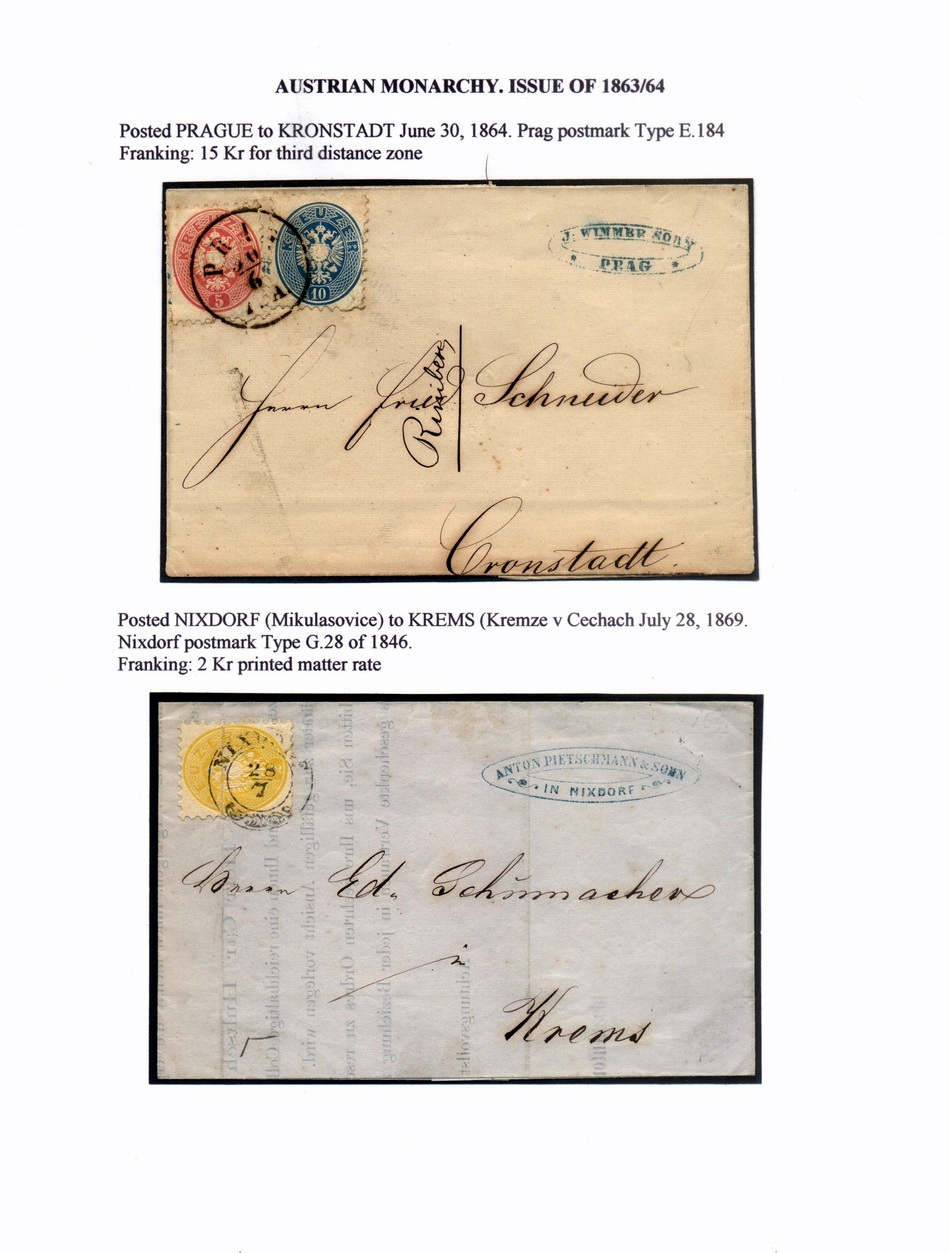 AUSTRIAN MONARCHY. ISSUE OF 1863/64
Posted PRAGUE to KRONSTADT June 30, 1864. Prag postmark Type E.184
Franking: 15 Kr for third distance zone
KREUZER
5
KREUZER
10
J. WIMMER SOHN
PRAG
Herrn Fried Schneider
Cronstadt.
Posted NIXDORF (Mikulasovice) to KREMS (Kremze v Cechach July 28, 1869.
Nixdorf postmark Type G.28 of 1846.
Franking: 2 Kr printed matter rate
NIXDORF
28
7
ANTON PIETSCHMANN & SOHN
IN NIXDORF
Herrn Ed. Schumacher
in
Krems